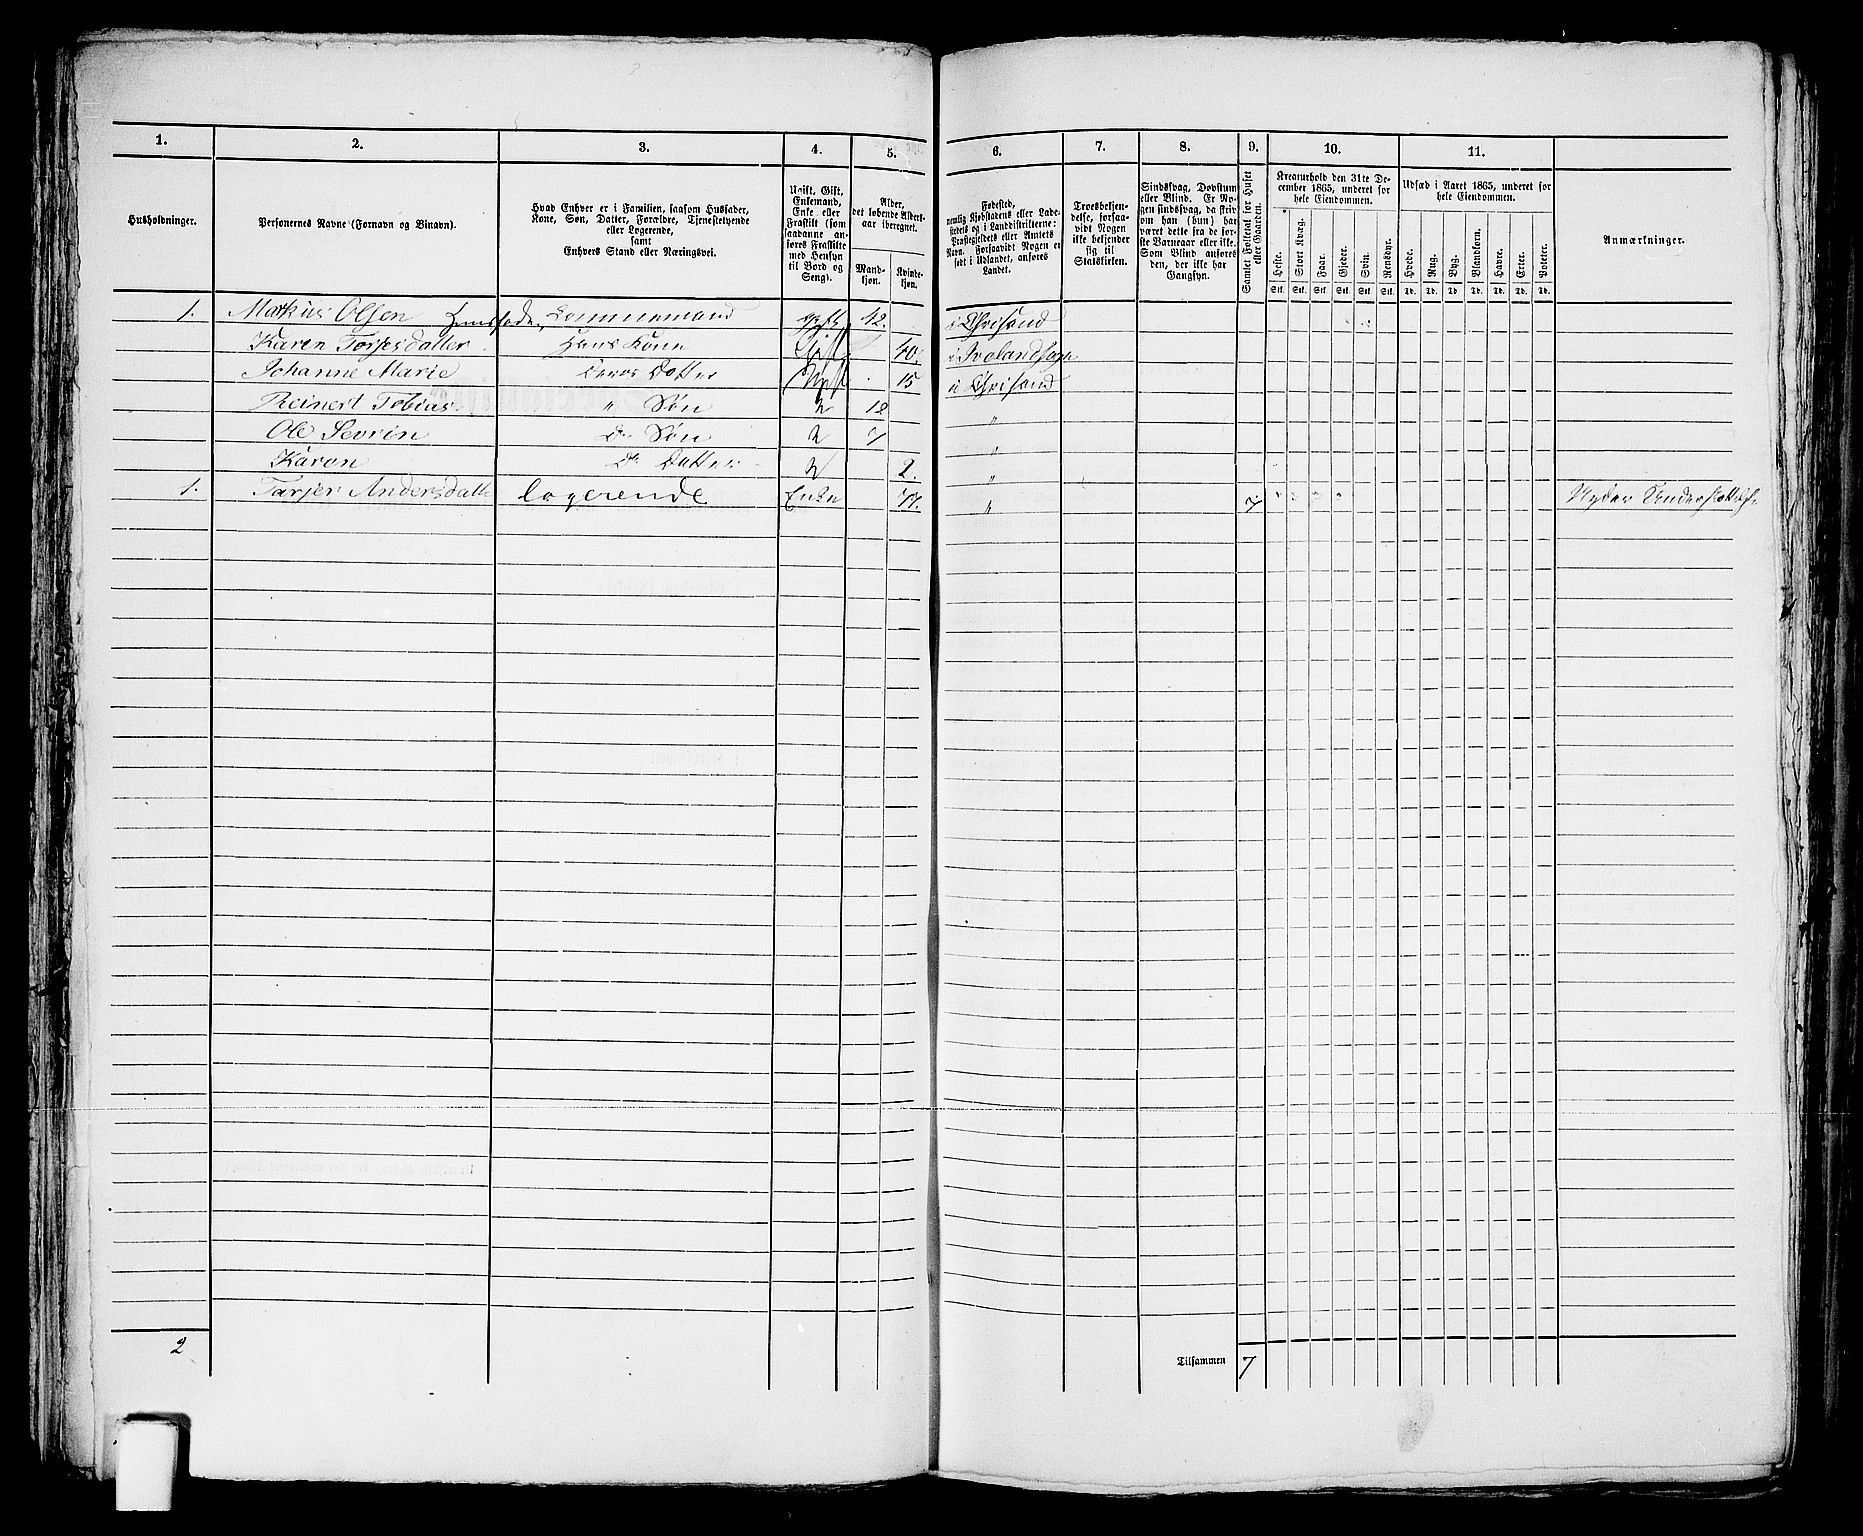 1. 2. 3. 4. 5. 6. 7. 8. 9. 10. 11.
Husholdninger.
Personernes Navne (Fornavn og Binavn).
Hvad Enhver er i Familien, saasom Husfader,
Kone, Søn, Datter, Forældre, Tjenestetyende
eller Logerende,
samt
Enhvers Stand eller Næringsvei.
Ugift, Gift,
Enkemand,
Enke eller
Fraskilt (som
saadanne an-
føres Fraskilte
med Hensyn
til Bord og
Seng).
Alder,
det løbende Alders-
aar iberegnet.
Mand-
kjøn.
Kvinde-
kjøn.
Fødested,
nemlig Kjøbstadens eller Lade-
stedets og i Landdistrikterne:
Præstegjeldets eller Amtets
Navn. Forsaavidt Nogen er
født i Udlandet, anføres
Landet.
Troesbekjen-
delse, forsaa-
vidt Nogen
ikke bekjender
sig til
Statskirken.
Sindssvag, Døvstum
eller Blind. Er No-
gen sindssvag, da skriv
om han (hun) har
været dette fra de før-
ste Barneaar eller ikke.
Som Blind anføres
den, der ikke har
Gangsyn.
Samlet Folketal for Huset
eller Gaarden.
Kreaturhold den 31te De-
cember 1865, underet for
hele Eiendommen.
Heste. Stort Kvæg. Faar. Gjeder. Svin. Rensdyr.
Stk. Stk. Stk. Stk. Stk. Stk.
Udsæd i Aaret 1865, underet for
hele Eiendommen.
Hvede. Rug. Byg. Blandkorn. Havre. Erter. Poteter.
Td. Td. Td. Td. Td. Td. Td.
Anmærkninger.
1. Markus Olsen Huusfader, gift 42. i Chrisand
Karen Torjesdatter Hans Kone Gift 40. i
Johanne Marie Deres Datter Ugift 15 i Chrisand
Reinert Tobias " Søn 12 "
Ole Sevrin Do Søn 7 "
Karen Do Datter 2. "
1. Tarjer Andersdatte logerende Enke 77. " 7 Nyder
2
Tilsammen 7